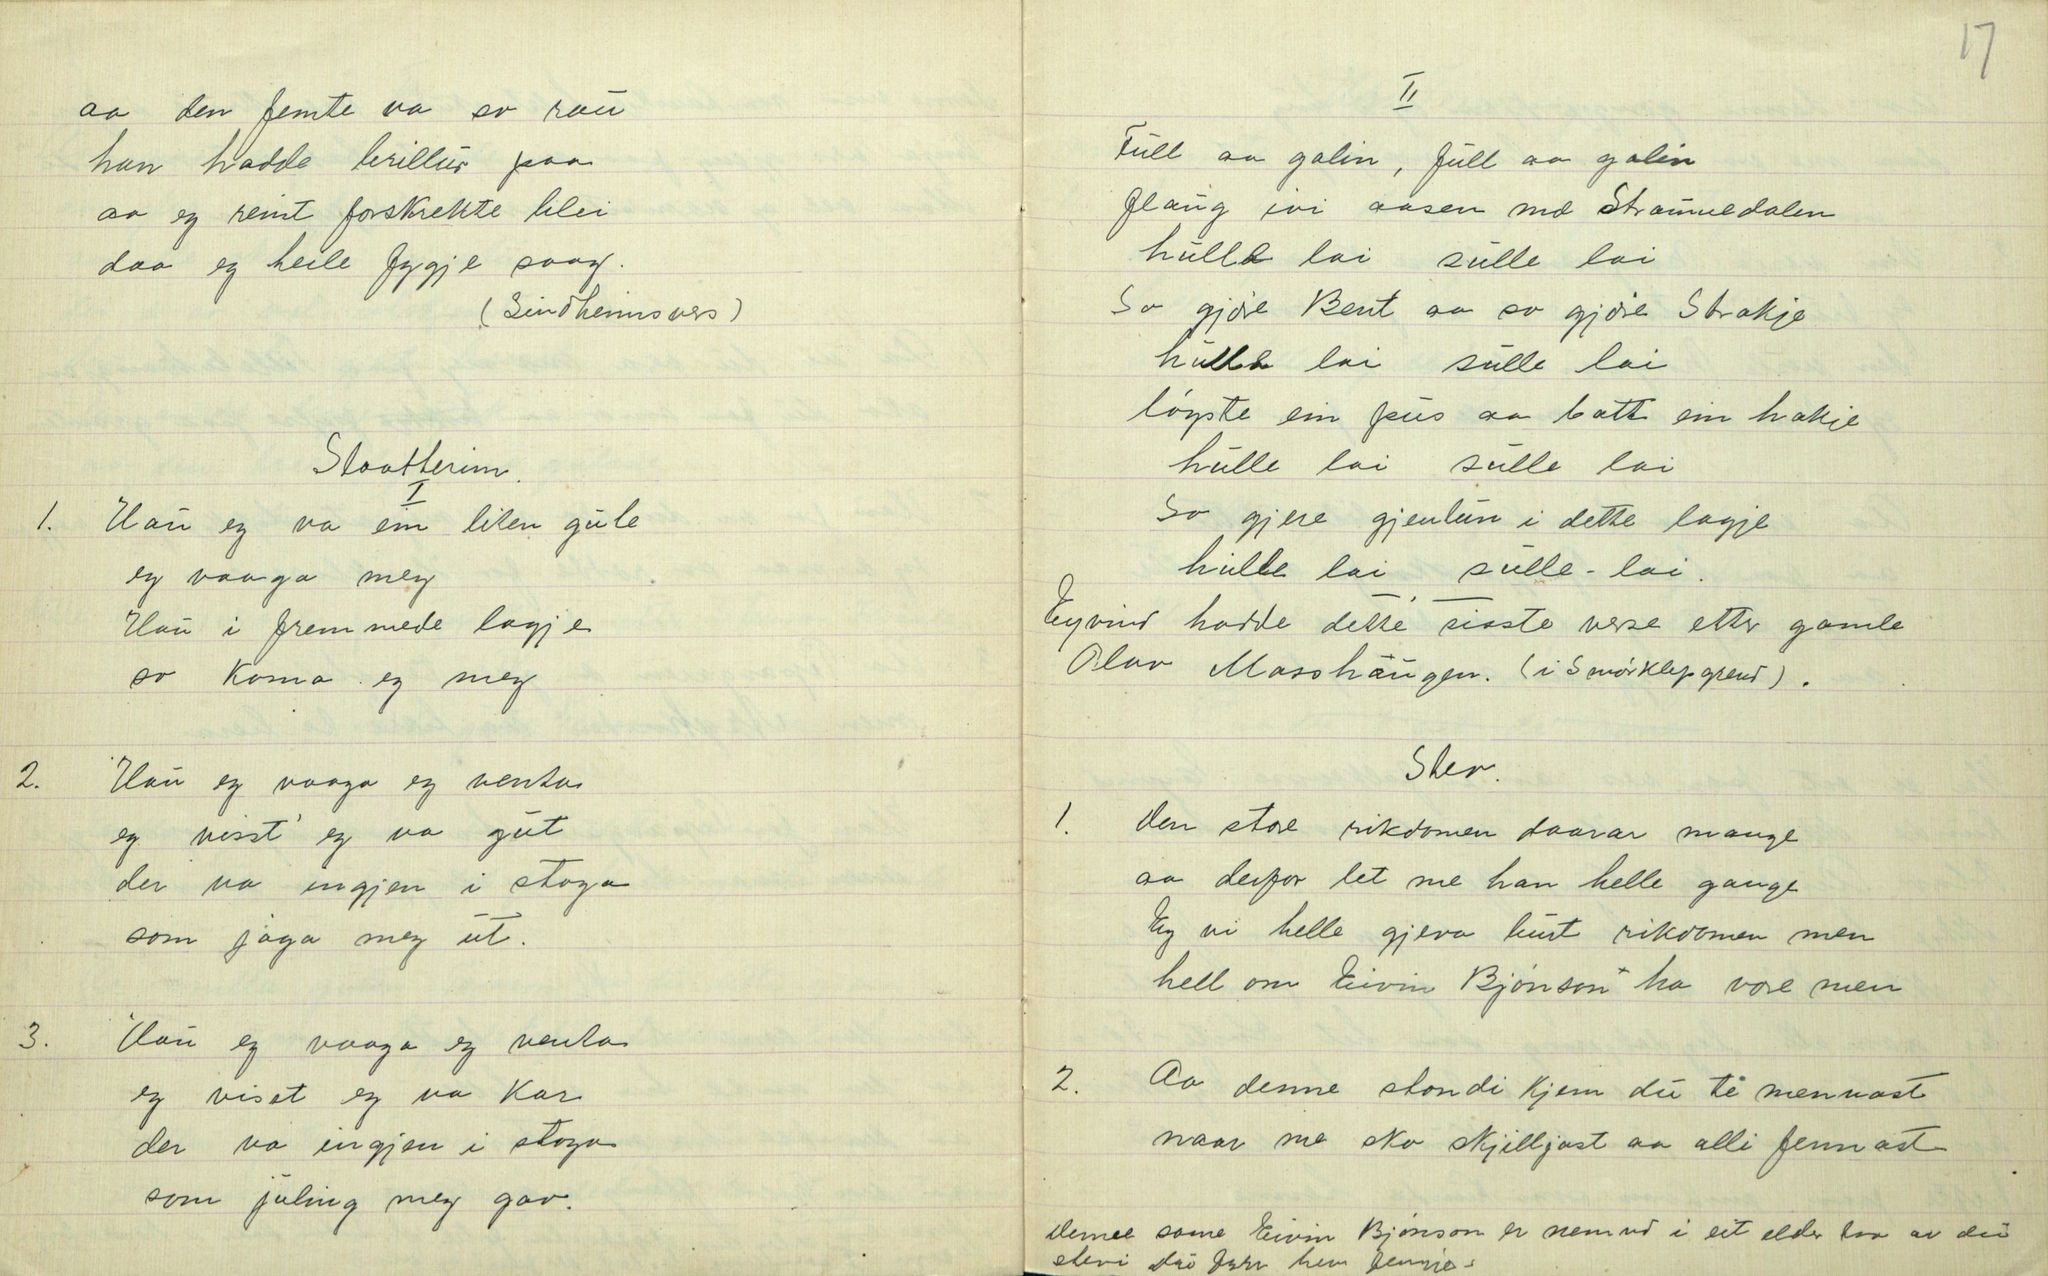 aa den femte va so rau
han hadde brillur paa
aa eg reint forskrekte blei
daa eg heile fygje saag.
(Sindheimsvers)
Slaatterim.
I
1. Hau eg va ein liten gute
eg vaaga meg
Hau i fremmede lagje
so koma eg meg
2. Hau eg vaaga eg venta
eg visst' eg va gut
der va ingjen i stoga
som jaga meg ut.
3. Hau eg vaaga eg venta
eg visst eg va kar
der va ingjen i stoga
som juling meg gav.
17
II
Full aa galin, full aa galin
flaug ivi aasen med Straumedalen
hulle lai sulle lai
So gjøre Bent aa so gjøre Strakje
hulle lai sulle lai
løyste ein fus aa batt ein hakje
hulle lai sulle lai
So gjere gjentun i dette lagje
hulle lai sulle-lai.
Eyvind hadde dette sisste verse etter gamle
Olav Masshaugen. (i Smørklepgrend).
Stev.
1. Den store rikdomen daarar mange
aa derfor let me han helle gange
Eg vi helle gjeva burt rikdomen men
hell om Eivin Bjønson+ ha vore men
2. Aa denne stondi kjem du te mennast
naar me ska skjilljast aa alli fennast
Denne same Eivin Bjønson er nemnd i eit elder too av dei
stevi dei fyrr hev